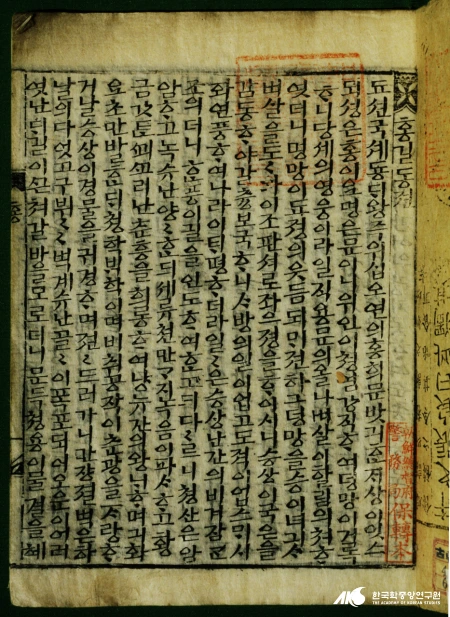 홍길동젼
됴션국셰둉ᄃᆡ왕즉위십오연의홍희문밧긔ᄒᆞᆫᄌᆡ상이잇스
되셩은홍이요명은문이니위인이쳥염강직ᄒᆞ여덕망이거록
ᄒᆞ니당셰의영웅이라일직용문의올나벼살이하림의쳐ᄒᆞ
엿더니명망이됴졍의웃듬되ᄆᆡ젼하그덕망을승이녀긔ᄉᆞ
벼살을도〻아이조판셔로좌으졍을ᄒᆞ이시니승상이국은을
감동ᄒᆞ야갈츙보국ᄒᆞ니ᄉᆞ방의일이업고도젹이업스ᄆᆡ시
화연풍ᄒᆞ여나라이ᄐᆡ평ᄒᆞ더라일일은승상난간의비겨잠ᄭᅩᆫ
조의더니ᄒᆞᆫ풍이길을인도ᄒᆞ여ᄒᆞᆫ고ᄃᆡ다〻르니쳥산은암
암ᄒᆞ고녹슈난양〻ᄒᆞᆫᄃᆡ셰류쳔만가지녹음이파ᄉᆞᄒᆞ고황
금갓튼ᄭᅬᄭᅩ리난츈흥을희롱ᄒᆞ여냥뉴간의왕ᄂᆡᄒᆞ며긔화
요초만발ᄒᆞᆫᄃᆡ쳥학ᄇᆡᆨ학이며비취공작이츈광을ᄌᆞ랑ᄒᆞ
거날승상이경물을귀경ᄒᆞ며졈〻드러가니만장졀벽은하
날의다엇고구뷔〻〻벽계슈난골〻이폰포되어오운이어러
엿난ᄃᆡ길이ᄭᅳᆫ쳐갈바를모로더니문득쳥용이물결을헤
한국학중앙연구원
THE ACADEMY OF KOREAN STUDIES